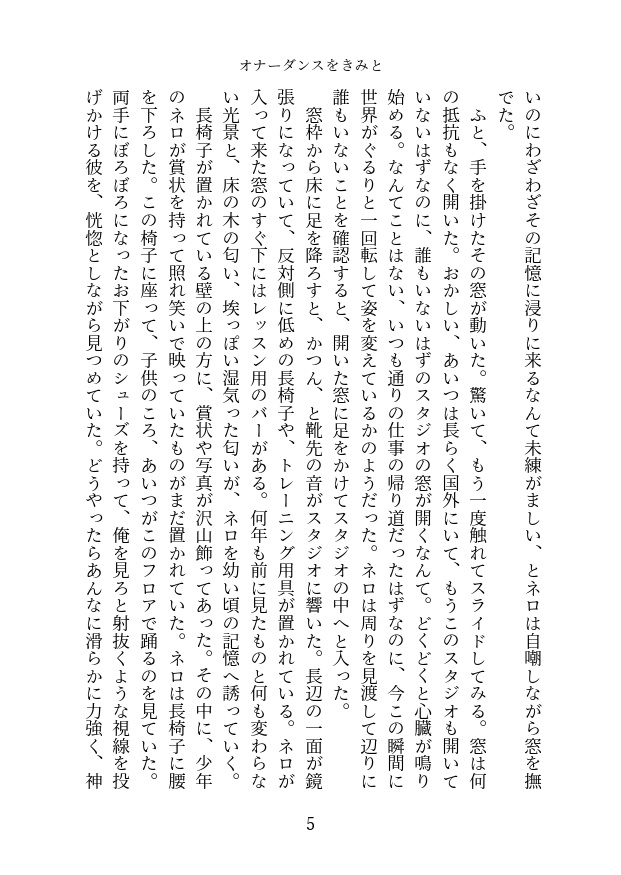 オナーダンスをきみと
いのにわざわざその記憶に浸りに来るなんて未練がましい、とネロは自嘲しながら窓を撫
でた。
ふと、手を掛けたその窓が動いた。驚いて、もう一度触れてスライドしてみる。窓は何
の抵抗もなく開いた。おかしい、あいつは長らく国外にいて、もうこのスタジオも開いて
いないはずなのに、誰もいないはずのスタジオの窓が開くなんて。どくどくと心臓が鳴り
始める。なんてことはない、いつも通りの仕事の帰り道だったはずなのに、今この瞬間に
世界がぐるりと一回転して姿を変えているかのようだった。ネロは周りを見渡して辺りに
誰もいないことを確認すると、開いた窓に足をかけてスタジオの中へと入った。
窓枠から床に足を降ろすと、かつん、と靴先の音がスタジオに響いた。長辺の一面が鏡
張りになっていて、反対側に低めの長椅子や、トレーニング用具が置かれている。ネロが
入って来た窓のすぐ下にはレッスン用のバーがある。何年も前に見たものと何も変わらな
い光景と、床の木の匂い、埃っぽい湿気った匂いが、ネロを幼い頃の記憶へ誘っていく。
長椅子が置かれている壁の上の方に、賞状や写真が沢山飾ってあった。その中に、少年
のネロが賞状を持って照れ笑いで映っていたものがまだ置かれていた。ネロは長椅子に腰
を下ろした。この椅子に座って、子供のころ、あいつがこのフロアで踊るのを見ていた。
両手にぼろぼろになったお下がりのシューズを持って、俺を見ろと射抜くような視線を投
げかける彼を、恍惚としながら見つめていた。どうやったらあんなに滑らかに力強く、神
5